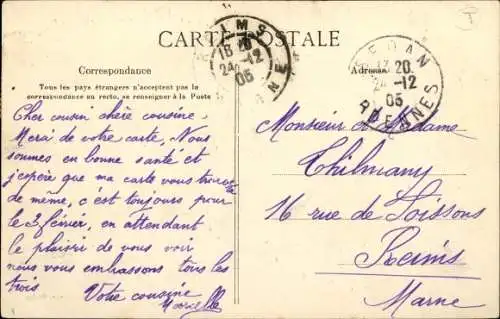 CARTE POSTALE
Correspondance
Tous les pays étrangers n'acceptent pas la
correspondance au recto, se renseigner à la Poste
Cher cousin chère cousine
Merci de votre carte, Nous
sommes en bonne santé et
j'espère que ma carte vous trouve
de même, c'est toujours pour
le 3 février, en attendant
le plaisir de vous voir
nous vous embrassons tous les
trois
Votre cousine
Marcelle
REIMS
18 20
24-12
05
MARNE
Adresse
SEDAN
20
24-12
05
ARDENNES
Monsieur et Madame
Thilmany
16 rue de Soissons
Reims
Marne